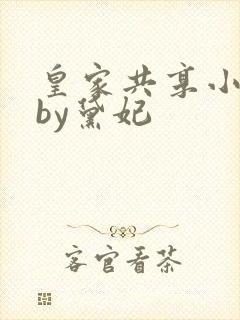 皇家共享小
by黛妃
客官看茶